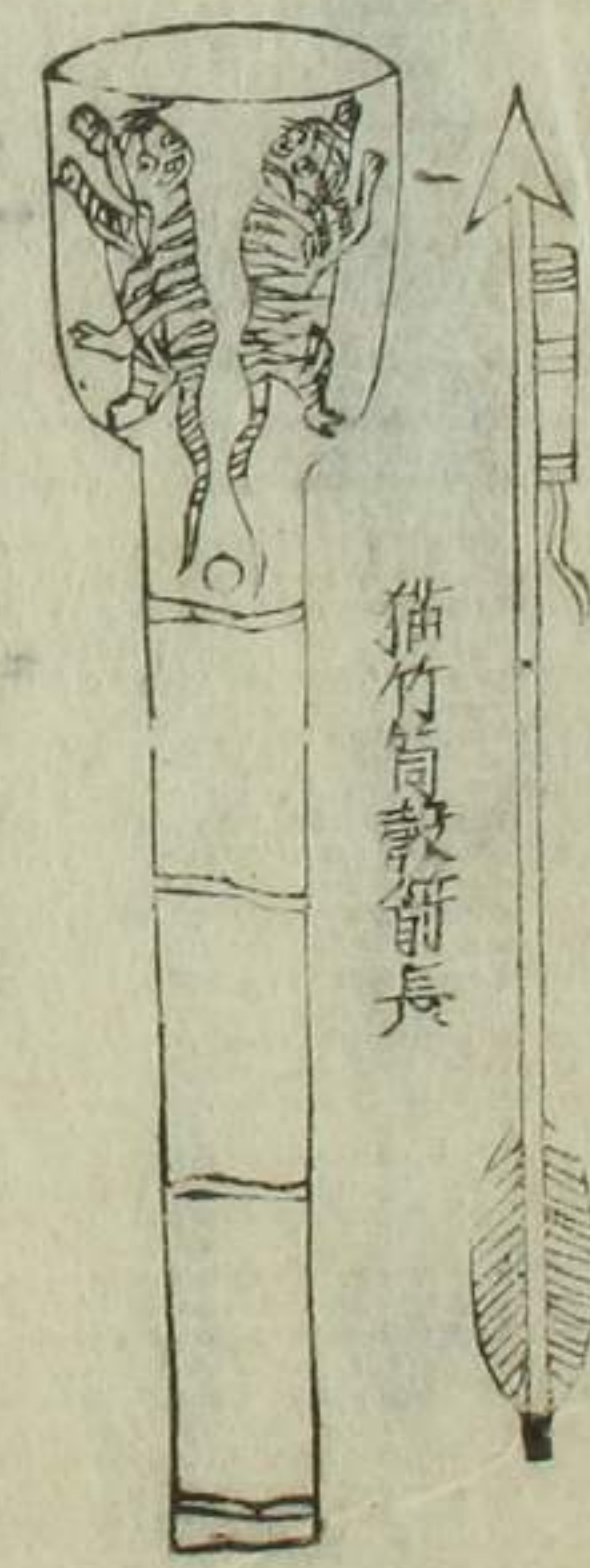 猫竹筒殼箭長